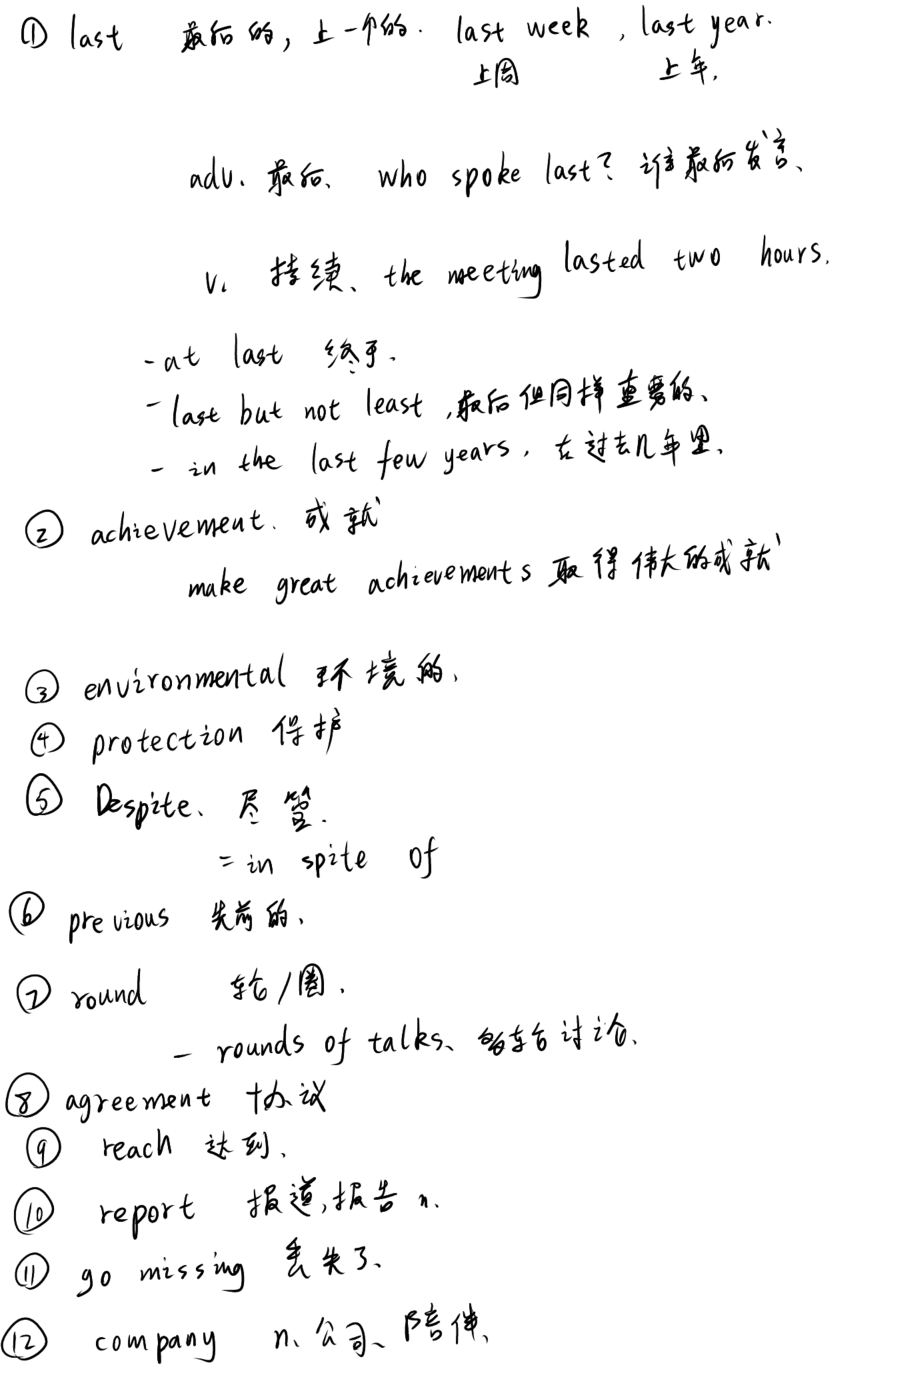 ① last 最后的, 上一个的. last week , last year.
上周 上年.
adv. 最后、 who spoke last? 谁最后发言、
v. 持续、the meeting lasted two hours.
-at last 终于.
- last but not least , 最后但同样重要的、
- in the last few years, 在过去几年里、
② achievement. 成就
make great achievements 取得伟大的成就
③ environmental 环境的.
④ protection 保护
⑤ Despite、尽管.
= in spite of
⑥ previous 先前的.
⑦ round 轮/圈.
- rounds of talks、多轮讨论.
⑧ agreement 协议
⑨ reach 达到.
⑩ report 报道,报告 n.
⑪ go missing 丢失了.
⑫ company n. 公司、陪伴、